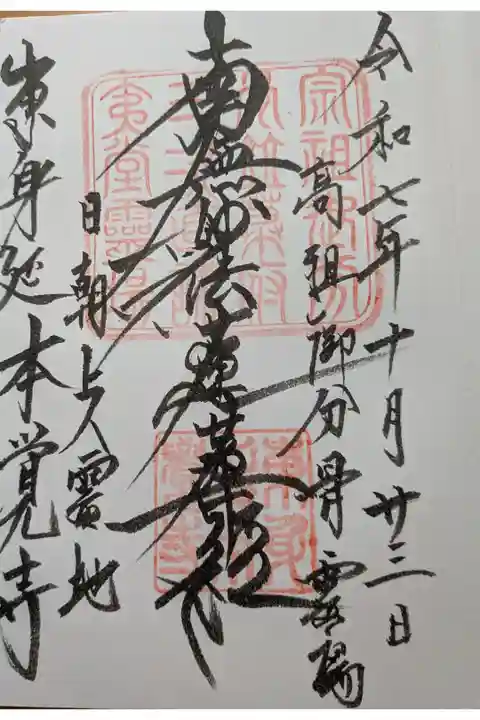 令和七年十月廿三日
高祖御分骨霊場
南無妙法蓮華経
日朝上人霊地
東身延本覚寺